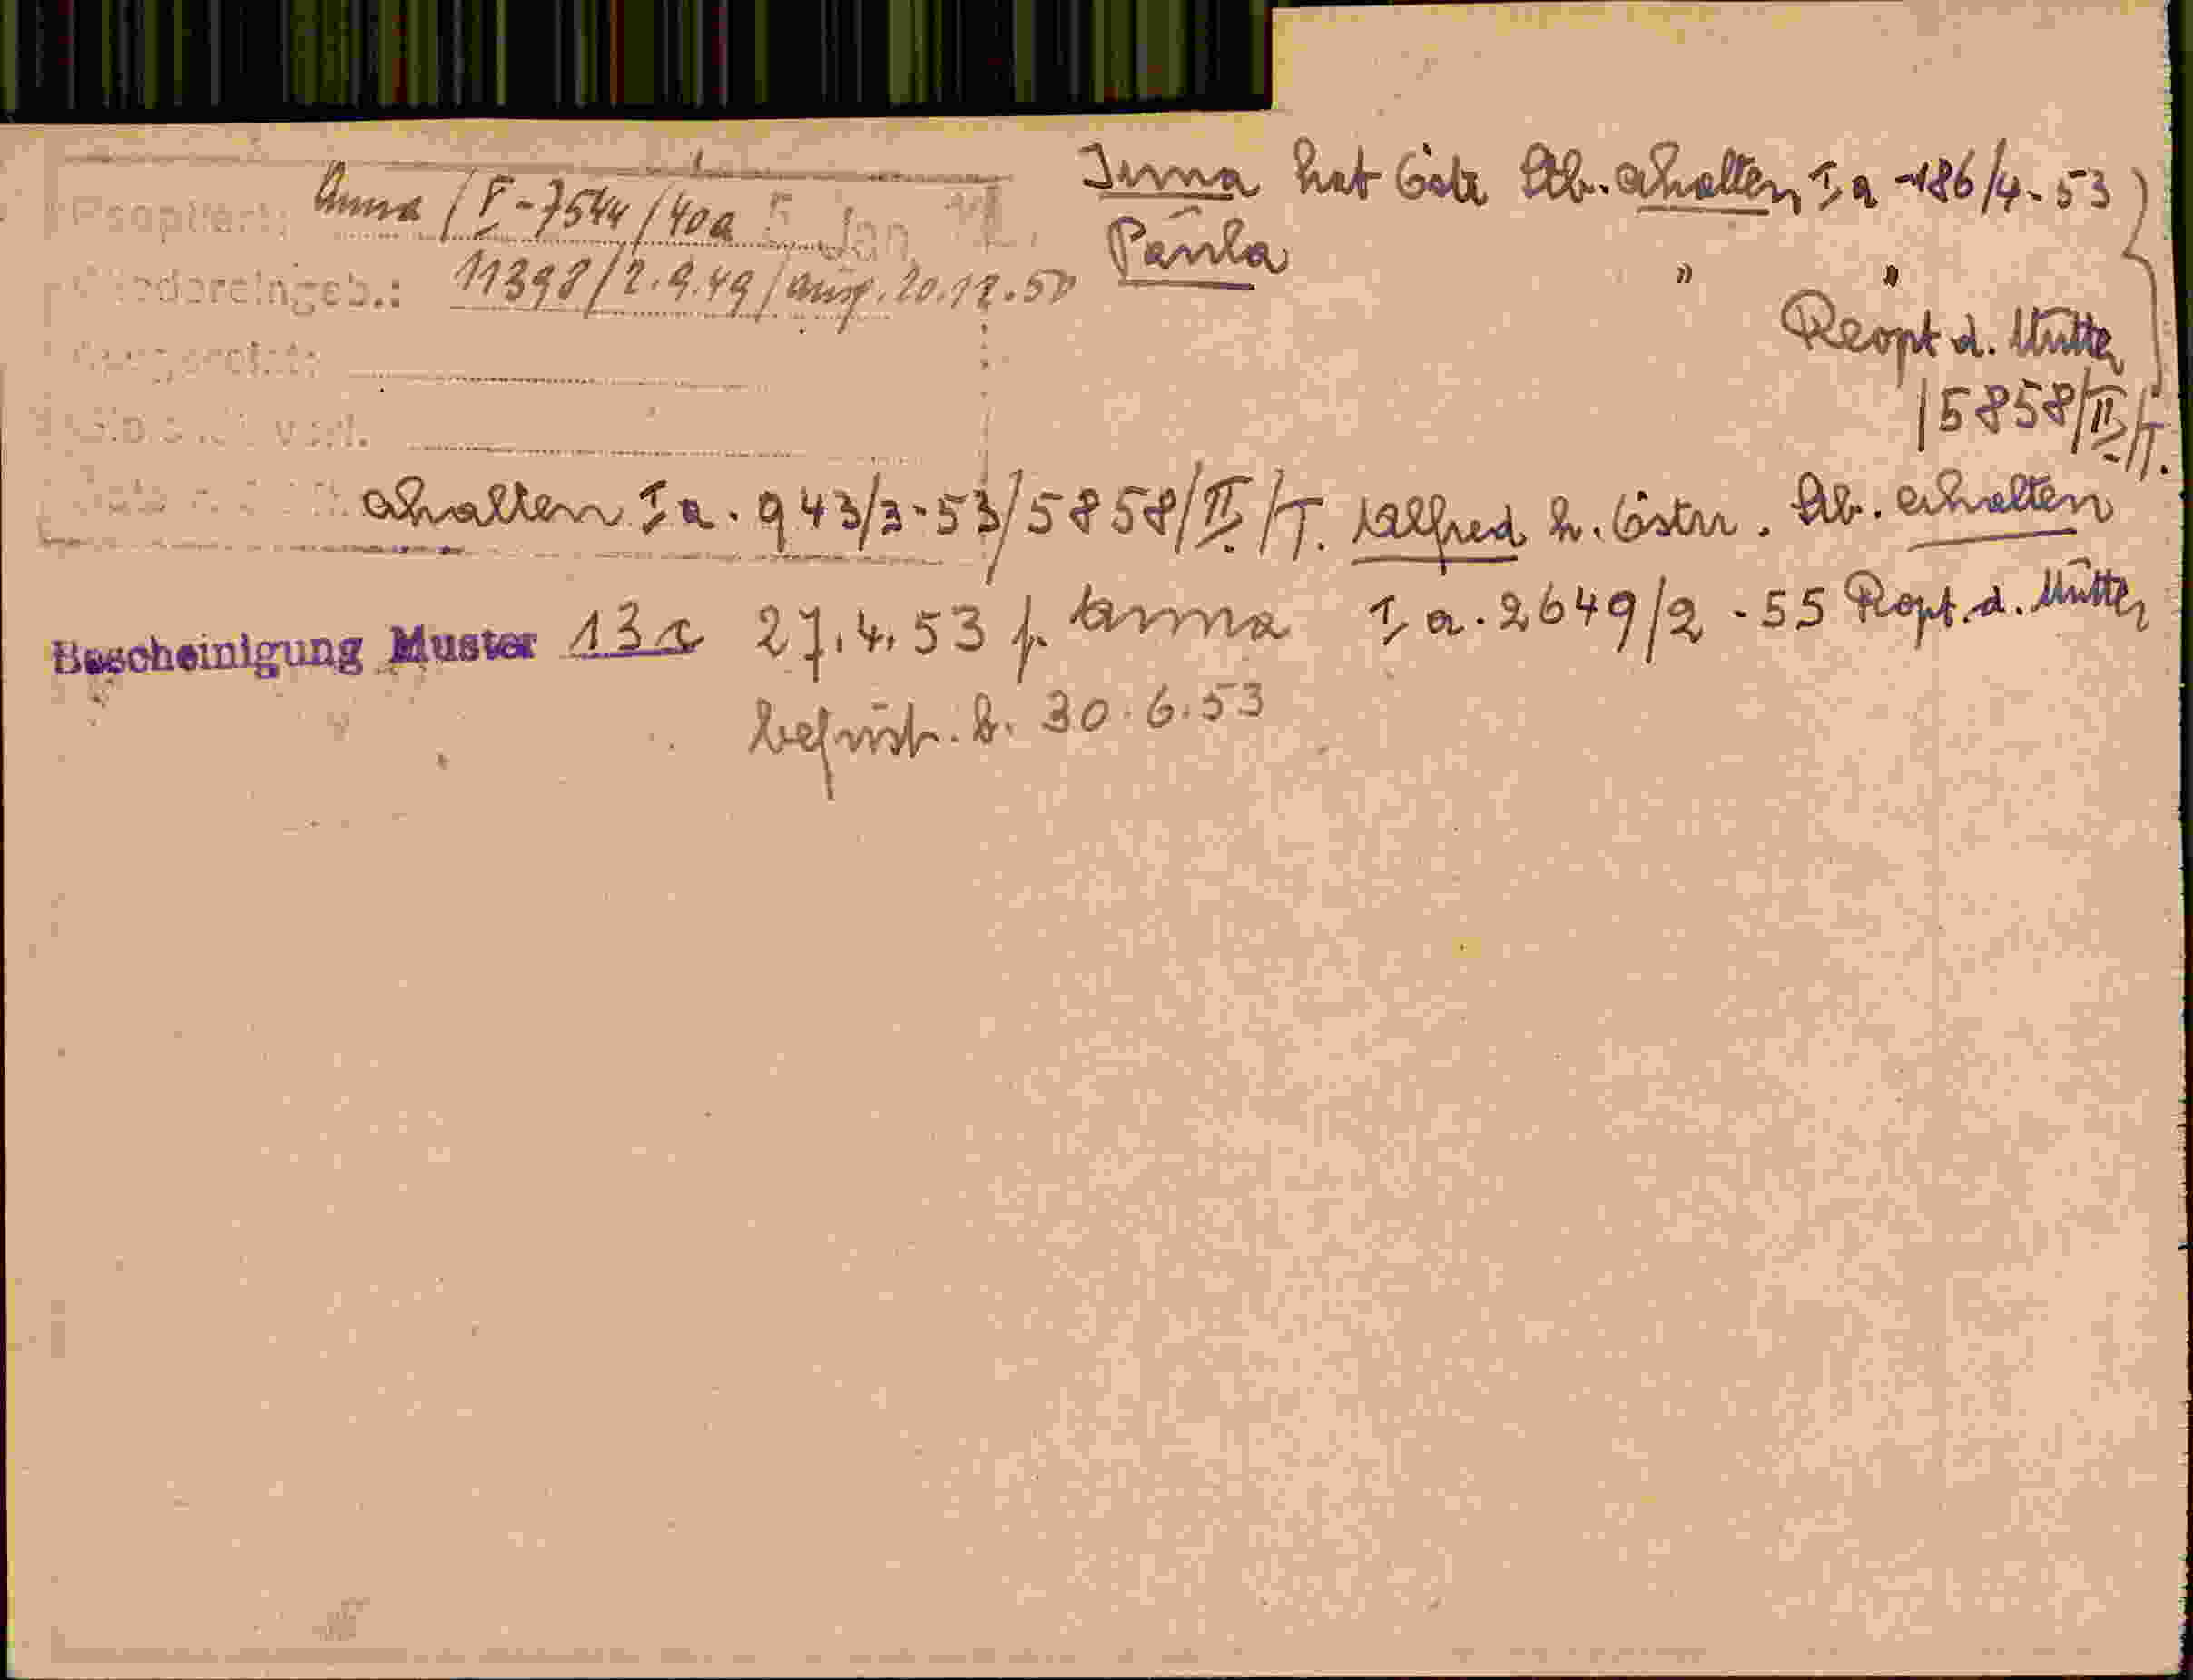 Reoptiert: Anna / I-7544/40a 5. Jan.
Wiedereingeb.: 11398/2.9.49/ausg. 20.12.50
Irma hat Östr Stb. erhalten Ia-186/4-53
Paula " "
Reopt d. Mutter
15858/II/T.
erhalten Ia. 943/3-53/5858/II/T. Alfred h. Östrr. Stb. erhalten
Ia. 2649/2-55 Ropt. d. Mutter
Bescheinigung Muster 13a 27.4.53 f. Anna
befrist. b. 30.6.53